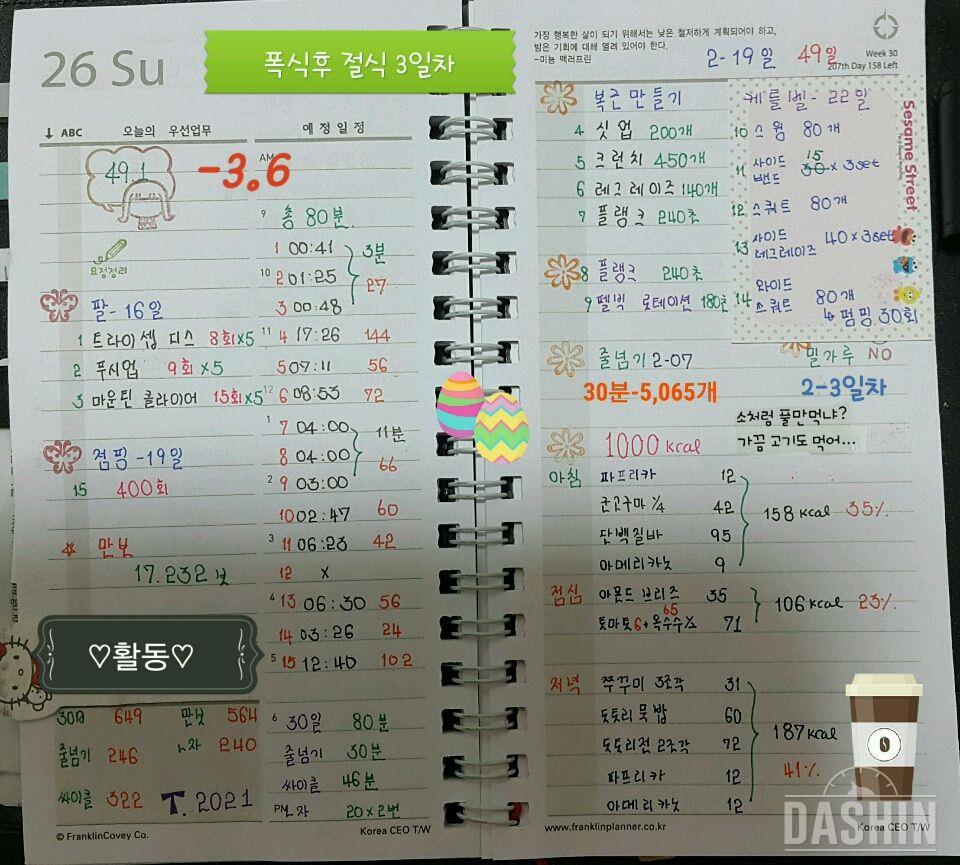 26 Su
폭식후 절식 3일차
↓ ABC 오늘의 우선업무
예정일정
49.1
-3.6
요점정리
팔-16일
1 트라이셉 딥스 8회×5
2 푸시업 9회×5
3 마운틴 클라이머 15회×5
점핑-19일
15 400회
만보
17.232보
♡활동♡
30일 649 만보 564
줄넘기 246 240
싸이클 322 T.2021
© FranklinCovey Co.
AM
9 총 80분
1 00:41
3분
10 2 01:25
27
3 00:48
11 4 17:26 144
5 07:11 56
12 6 08:53 72
1 7 04:00
11분
8 04:00
66
2 9 03:00
10 02:47 60
3 11 06:23 42
12 x
4 13 06:30 56
14 03:26 24
5 15 12:40 102
6 30일 80분
줄넘기 30분
싸이클 46분
PM 20×2번
Korea CEO T/W
가장 행복한 삶이 되기 위해서는 낮은 철저하게 계획되어야 하고,
밤은 기회에 대해 열려 있어야 한다.
-미뇽 맥러프린
2-19일 49일
Week 30
207th Day 158 Left
복근만들기
4 싯업 200개
5 크런치 450개
6 레그레이즈 140개
7 플랭크 240초
8 플랭크 240초
9 펠빅 로테이션 180초
케틀벨-22일
10 스윙 80개
11 사이드 밴드 15 30×3set
12 스쿼트 80개
13 사이드 레그레이즈 40×3set
14 와이드 스쿼트 80개
↳ 펌핑 30회
Sesame Street
줄넘기 2-07
30분-5,065개
밀가루 NO
2-3일차
소처럼 풀만먹냐?
가끔 고기도 먹어...
1000 kcal
아침 파프리카 12
군고구마 1/4 42
단백질바 95
아메리카노 9
158 kcal 35%
점심 아몬드 브리즈 35
65
토마토6+옥수수½ 71
106 kcal 23%
저녁 쭈꾸미 3조각 31
도토리묵밥 60
도토리전 2조각 72
파프리카 12
아메리카노 12
187 kcal
41%
www.franklinplanner.co.kr
Korea CEO T/W
DASHIN